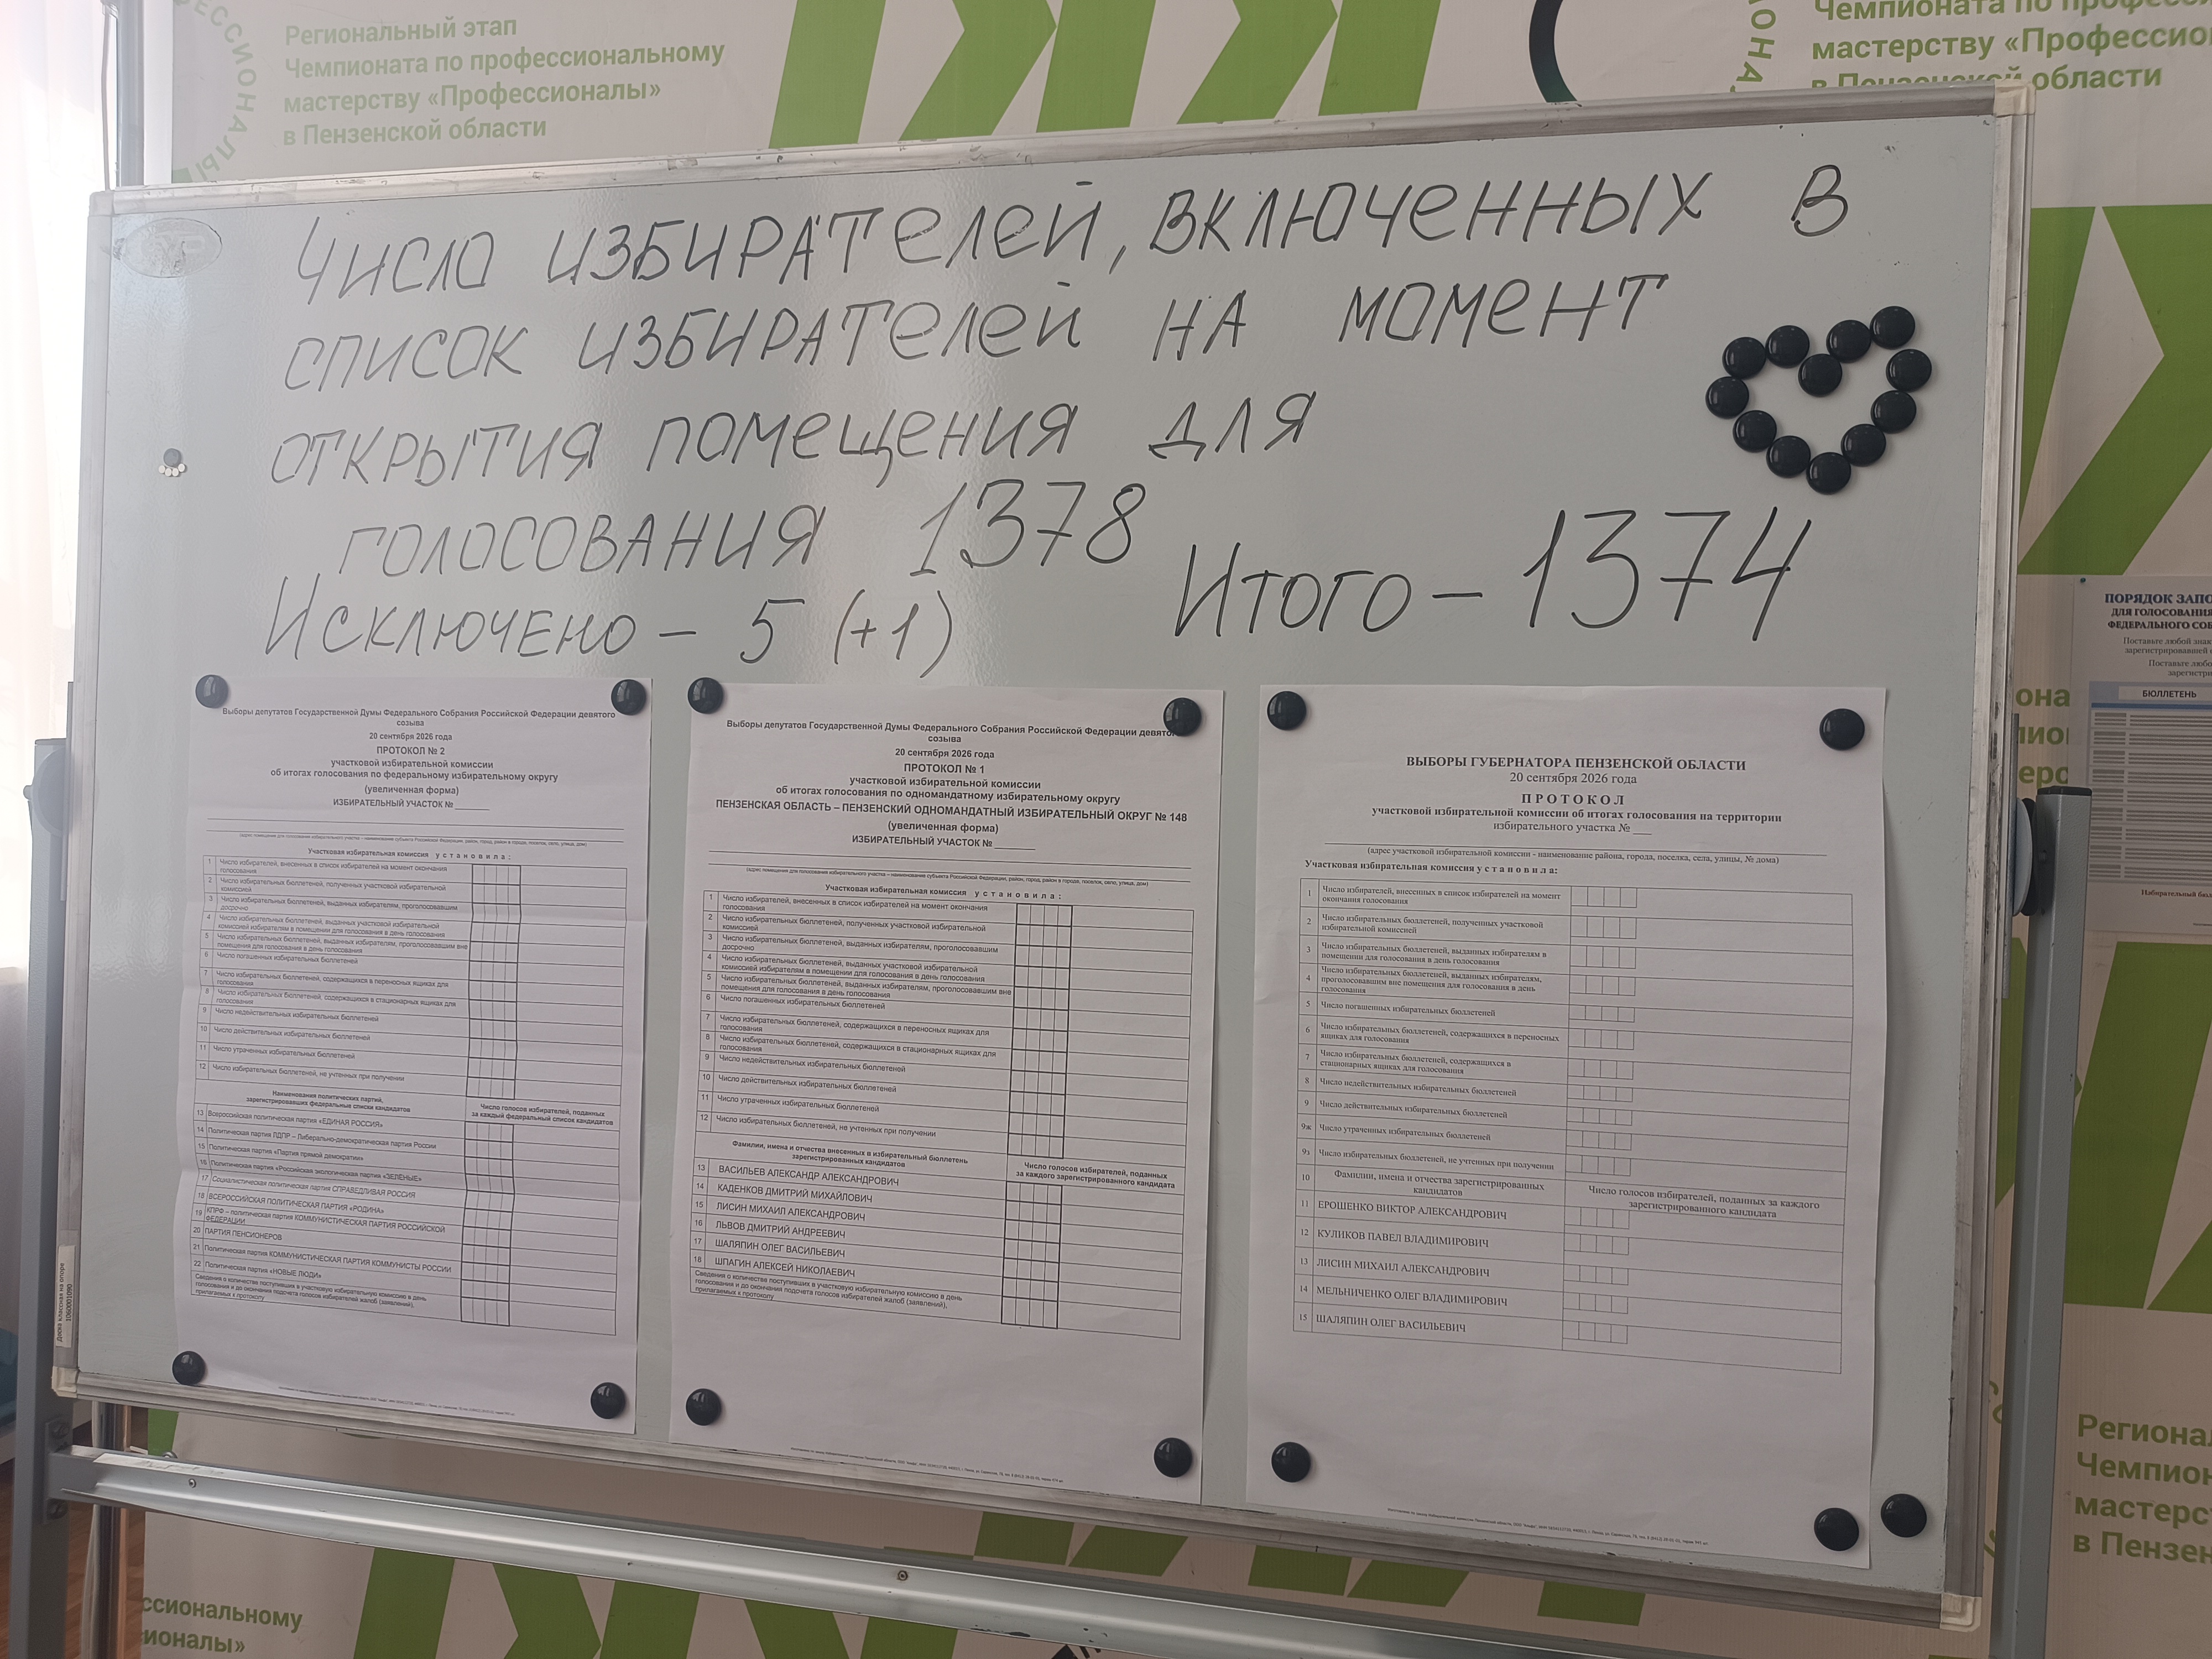 Региональный этап
Чемпионата по профессиональному
мастерству «Профессионалы»
в Пензенской области
Чемпионата по
мастерству
в Пензенской области
Число избирателей, включенных в
список избирателей на момент
открытия помещения для
голосования 1378
Исключено – 5 (+1)
Итого – 1374
Выборы депутатов Государственной Думы Федерального Собрания Российской Федерации девятого
созыва
20 сентября 2026 года
ПРОТОКОЛ № 2
участковой избирательной комиссии
об итогах голосования по федеральному избирательному округу
(увеличенная форма)
ИЗБИРАТЕЛЬНЫЙ УЧАСТОК №
Участковая избирательная комиссия установила:
1 Число избирателей, внесенных в список избирателей на момент окончания
голосования
2 Число избирательных бюллетеней, полученных участковой избирательной
комиссией
3 Число избирательных бюллетеней, выданных избирателям, проголосовавшим
досрочно
4 Число избирательных бюллетеней, выданных участковой избирательной
комиссией избирателям в помещении для голосования в день голосования
5 Число избирательных бюллетеней, выданных избирателям, проголосовавшим вне
помещения для голосования в день голосования
6 Число погашенных избирательных бюллетеней
7 Число избирательных бюллетеней, содержащихся в переносных ящиках для
голосования
8 Число избирательных бюллетеней, содержащихся в стационарных ящиках для
голосования
9 Число недействительных избирательных бюллетеней
10 Число действительных избирательных бюллетеней
11 Число утраченных избирательных бюллетеней
12 Число избирательных бюллетеней, не учтенных при получении
Наименования политических партий,
зарегистрировавших федеральные списки кандидатов
Число голосов избирателей, поданных
за каждый федеральный список кандидатов
13 Всероссийская политическая партия «ЕДИНАЯ РОССИЯ»
14 Политическая партия ЛДПР – Либерально-демократическая партия России
15 Политическая партия «Партия прямой демократии»
16 Политическая партия «Российская экологическая партия «ЗЕЛЁНЫЕ»
17 Социалистическая политическая партия СПРАВЕДЛИВАЯ РОССИЯ
18 ВСЕРОССИЙСКАЯ ПОЛИТИЧЕСКАЯ ПАРТИЯ «РОДИНА»
19 КПРФ – политическая партия КОММУНИСТИЧЕСКАЯ ПАРТИЯ РОССИЙСКОЙ
ФЕДЕРАЦИИ
20 ПАРТИЯ ПЕНСИОНЕРОВ
21 Политическая партия КОММУНИСТИЧЕСКАЯ ПАРТИЯ КОММУНИСТЫ РОССИИ
22 Политическая партия «НОВЫЕ ЛЮДИ»
Сведения о количестве поступивших в участковую избирательную комиссию в день
голосования и до окончания подсчета голосов избирателей жалоб (заявлений),
прилагаемых к протоколу
Выборы депутатов Государственной Думы Федерального Собрания Российской Федерации девятого
созыва
20 сентября 2026 года
ПРОТОКОЛ № 1
участковой избирательной комиссии
об итогах голосования по одномандатному избирательному округу
ПЕНЗЕНСКАЯ ОБЛАСТЬ – ПЕНЗЕНСКИЙ ОДНОМАНДАТНЫЙ ИЗБИРАТЕЛЬНЫЙ ОКРУГ № 148
(увеличенная форма)
ИЗБИРАТЕЛЬНЫЙ УЧАСТОК №
Участковая избирательная комиссия установила:
1 Число избирателей, внесенных в список избирателей на момент окончания
голосования
2 Число избирательных бюллетеней, полученных участковой избирательной
комиссией
3 Число избирательных бюллетеней, выданных избирателям, проголосовавшим
досрочно
4 Число избирательных бюллетеней, выданных участковой избирательной
комиссией избирателям в помещении для голосования в день голосования
5 Число избирательных бюллетеней, выданных избирателям, проголосовавшим вне
помещения для голосования в день голосования
6 Число погашенных избирательных бюллетеней
7 Число избирательных бюллетеней, содержащихся в переносных ящиках для
голосования
8 Число избирательных бюллетеней, содержащихся в стационарных ящиках для
голосования
9 Число недействительных избирательных бюллетеней
10 Число действительных избирательных бюллетеней
11 Число утраченных избирательных бюллетеней
12 Число избирательных бюллетеней, не учтенных при получении
Фамилии, имена и отчества внесенных в избирательный бюллетень
зарегистрированных кандидатов
Число голосов избирателей, поданных
за каждого зарегистрированного кандидата
13 ВАСИЛЬЕВ АЛЕКСАНДР АЛЕКСАНДРОВИЧ
14 КАДЕНКОВ ДМИТРИЙ МИХАЙЛОВИЧ
15 ЛИСИН МИХАИЛ АЛЕКСАНДРОВИЧ
16 ЛЬВОВ ДМИТРИЙ АНДРЕЕВИЧ
17 ШАЛЯПИН ОЛЕГ ВАСИЛЬЕВИЧ
18 ШПАГИН АЛЕКСЕЙ НИКОЛАЕВИЧ
Сведения о количестве поступивших в участковую избирательную комиссию в день
голосования и до окончания подсчета голосов избирателей жалоб (заявлений),
прилагаемых к протоколу
ВЫБОРЫ ГУБЕРНАТОРА ПЕНЗЕНСКОЙ ОБЛАСТИ
20 сентября 2026 года
ПРОТОКОЛ
участковой избирательной комиссии об итогах голосования на территории
избирательного участка №
(адрес участковой избирательной комиссии - наименование района, города, поселка, села, улицы, № дома)
Участковая избирательная комиссия установила:
1 Число избирателей, внесенных в список избирателей на момент
окончания голосования
2 Число избирательных бюллетеней, полученных участковой
избирательной комиссией
3 Число избирательных бюллетеней, выданных избирателям в
помещении для голосования в день голосования
4 Число избирательных бюллетеней, выданных избирателям,
проголосовавшим вне помещения для голосования в день
голосования
5 Число погашенных избирательных бюллетеней
6 Число избирательных бюллетеней, содержащихся в переносных
ящиках для голосования
7 Число избирательных бюллетеней, содержащихся в
стационарных ящиках для голосования
8 Число недействительных избирательных бюллетеней
9 Число действительных избирательных бюллетеней
9ж Число утраченных избирательных бюллетеней
9з Число избирательных бюллетеней, не учтенных при получении
10 Фамилии, имена и отчества зарегистрированных
кандидатов
Число голосов избирателей, поданных за каждого
зарегистрированного кандидата
11 ЕРОШЕНКО ВИКТОР АЛЕКСАНДРОВИЧ
12 КУЛИКОВ ПАВЕЛ ВЛАДИМИРОВИЧ
13 ЛИСИН МИХАИЛ АЛЕКСАНДРОВИЧ
14 МЕЛЬНИЧЕНКО ОЛЕГ ВЛАДИМИРОВИЧ
15 ШАЛЯПИН ОЛЕГ ВАСИЛЬЕВИЧ
ПОРЯДОК
ДЛЯ ГОЛОСОВАНИЯ
ФЕДЕРАЛЬНОГО
Поставьте любой
БЮЛЛЕТЕНЬ
Доска классная на опоре